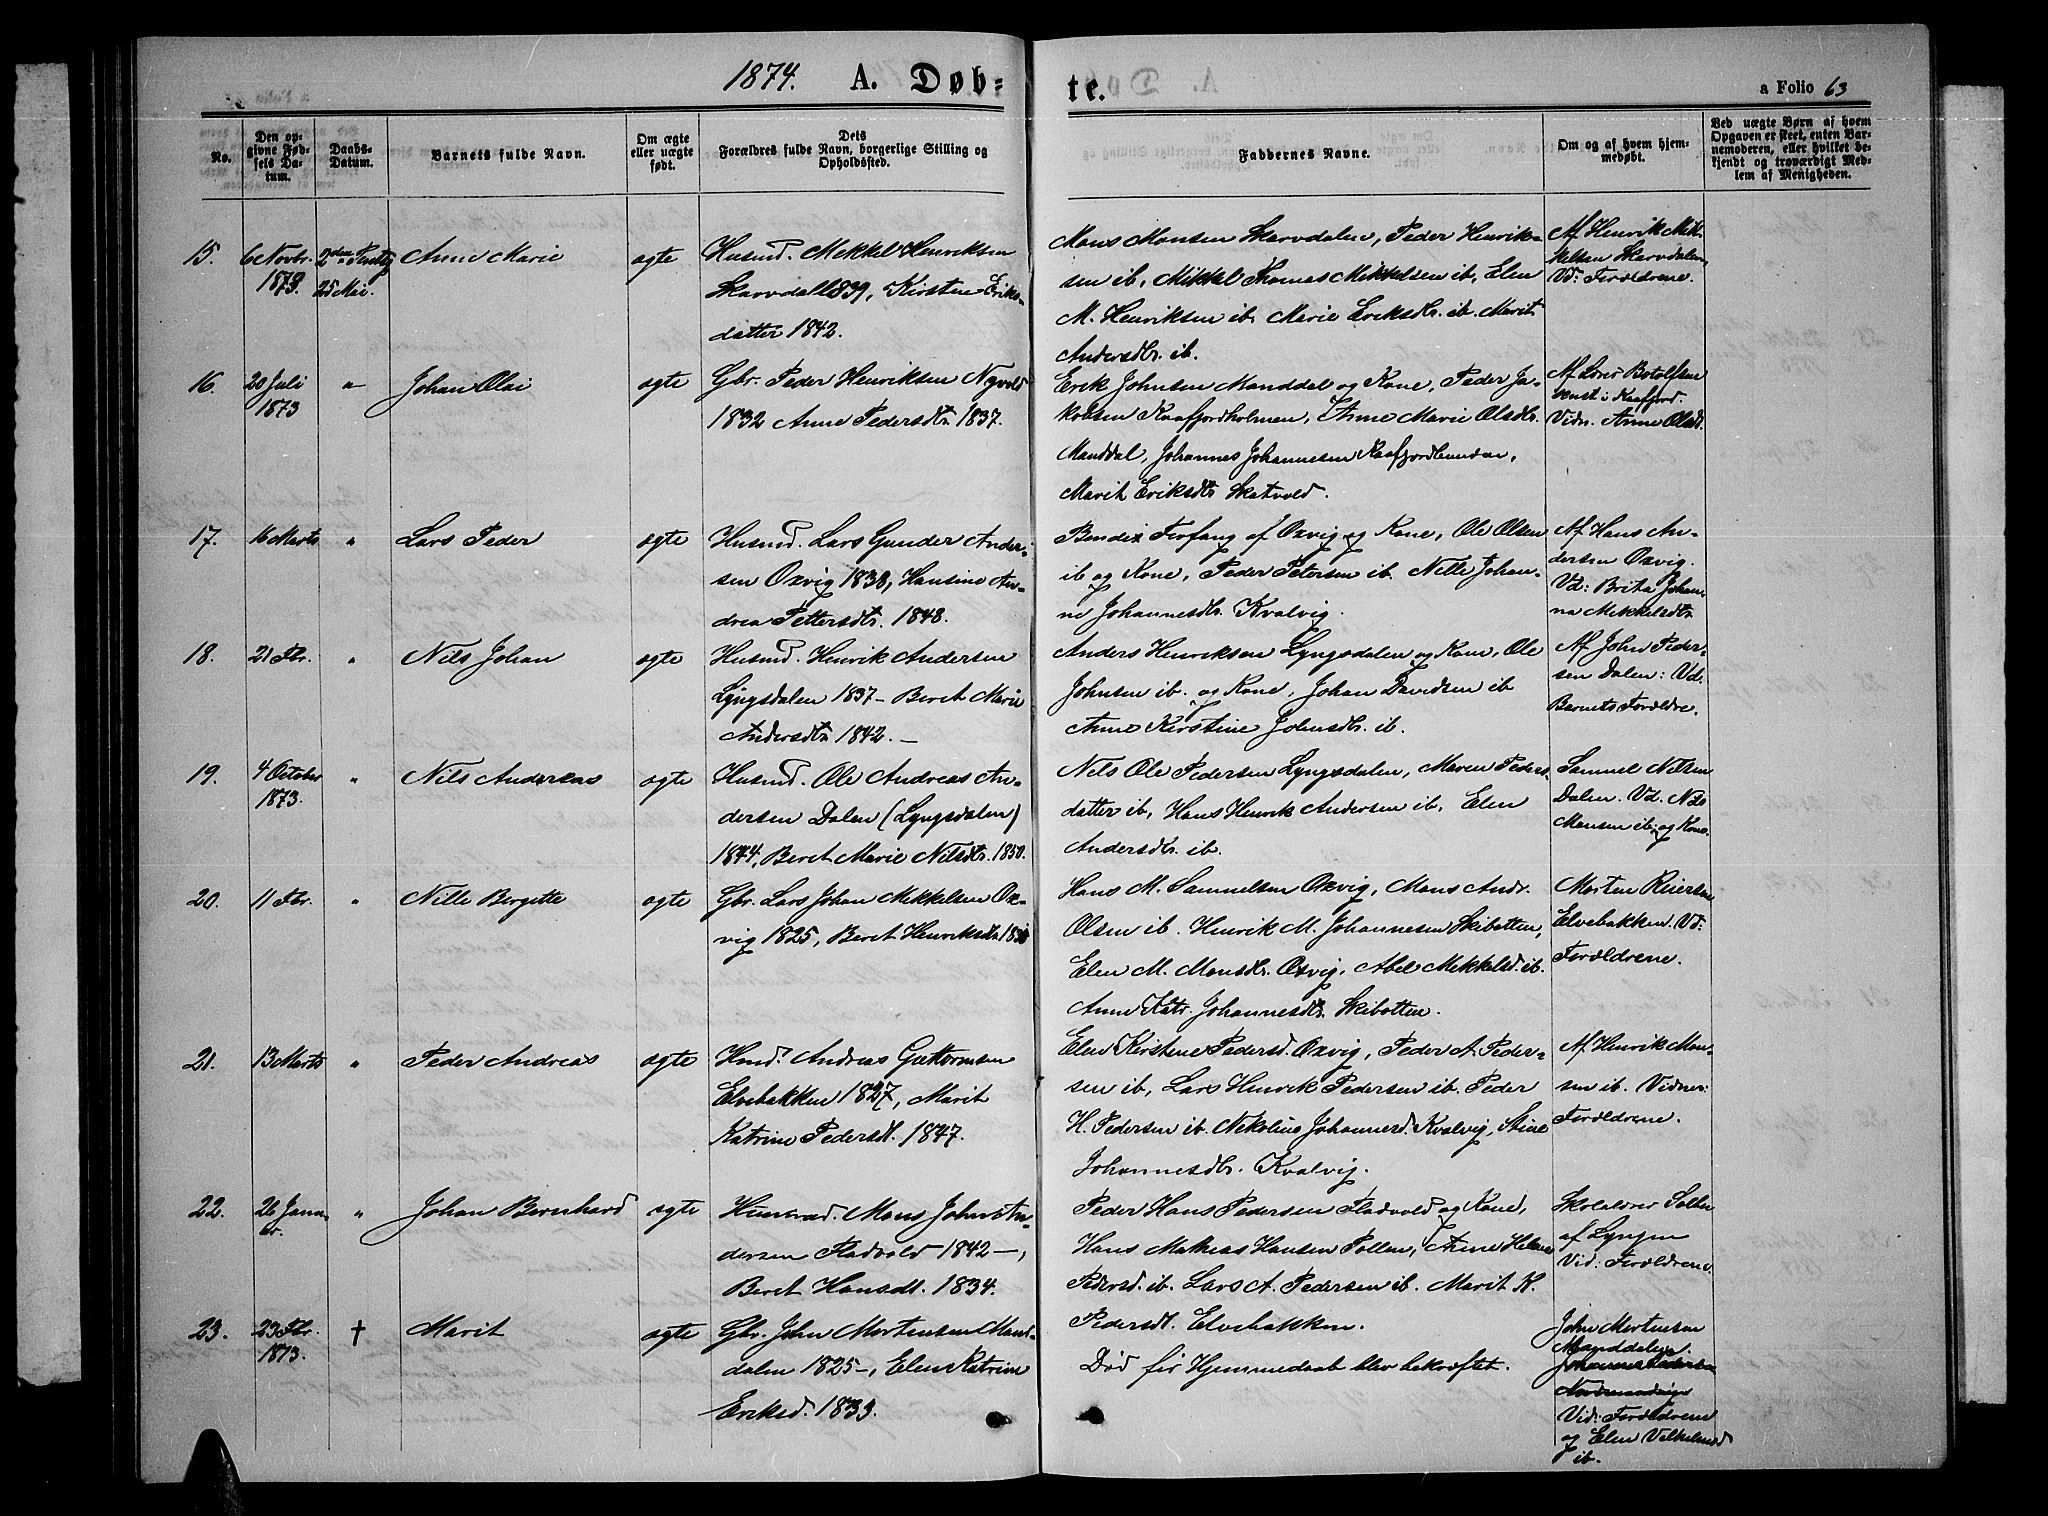 1874. A. Døb=
te.
a Folio 63
No.
Den op=
givne Fød=
sels Da=
tum.
Daabs=
Datum.
Barnets fulde Navn.
Om ægte
eller uægte
født.
Dets
Forældres fulde Navn, borgerlige Stilling og
Opholdssted.
Faddernes Navne.
Om og af hvem hjem=
medøbt.
Ved uægte Børn af hvem
Opgaven er skeet, enten Bar=
nemoderen, eller hvilket be=
kjendt og troværdigt Med=
lem af Menigheden.
15.
6 Novbr.
1873.
2den
25 Mai.
Anne Marie
ægte
Husmd. Mekkel Henriksen
Skarvdal 1839, Kirsten Eriks=
datter 1842.
Mons Monsen Skarvdalen, Peder Henrik=
sen ib, Mikkel Thomas Mikkelsen ib, Elen
M. Henriksen ib. Marie Eriksdtr. ib. Marit
Andersdtr. ib.
Af Henrik Mik=
kelsen Skarvdalen,
Vd: Forældrene.
16.
20 Juli
1873
"
Johan Olai
ægte
Gbr. Peder Henriksen Nyvold
1832 Anne Pedersdtr. 1837.
Erik Johnsen Manddal og Kone, Peder Ja=
kobsen Kaafjordholmen, Anne Marie Olsdtr.
Manddal, Johannes Johannesen Kaafjordbunden,
Marit Eriksdtr Skatvold.
Af Lærer Botolfsen
i Kaafjord.
Vidn. Anne Olsd.
17.
16 Marts
"
Lars Peder
ægte
Husmd. Lars Gunder Ander=
sen Oxvig 1838, Hansine An=
drea Pettersdtr. 1848.
Bendix Forfang af Oxvig og Kone, Ole Olsen
ib og Kone, Peder Petersen ib. Nelle Johan=
ne Johannesdtr. Kvalvig.
Af Hans An=
dersen Oxvig.
Vd: Brita Johan=
na Mekkelsdtr.
18.
21 Fbr.
"
Nils Johan
ægte
Husmd. Henrik Andersen
Lyngsdalen 1837 - Beret Marie
Andersdtr 1842. -
Anders Henriksen Lyngsdalen og Kone, Ole
Johnsen ib. og Kone, Johan Davidsen ib
Anne Kirstine Johnsdtr. ib.
Af John Peder=
sen Dalen: Vd:
Barnets Forældre.
19.
4 October
1873.
"
Nils Andreas
ægte
Husmd. Ole Andreas An=
dersen Dalen (Lyngsdalen)
1844, Beret Marie Nilsdtr. 1850.
Nels Ole Pedersen Lyngsdalen, Maren Peders=
datter ib, Hans Henrik Andersen ib, Elen
Andersdtr. ib.
Samuel Nilsen
Dalen. Vd. Nils
Monsen ib. og Kone.
20.
11 Fbr.
"
Nille Bergitte
ægte
Gbr. Lars Johan Mekkelsen Ox=
vig 1825, Beret Henriksdtr
Hans M. Samuelsen Oxvig, Mons Andr.
Olsen ib. Henrik M. Johannesen Skibotten,
Elen M. Monsdtr. Oxvig, Abel Mekkelsd. ib.
Anne Katr. Johannesdtr. Skibotten.
Morten Reiersen
Elvebakken. Vd:
Forældrene.
21.
13 Marts
"
Peder Andreas
ægte
Hmd. Andreas Guttormsen
Elvebakken 1827, Marit
Katrine Pedersdt. 1847.
Elen Kirstene Pedersd. Oxvig, Peder A. Peder=
sen ib, Lars Henrik Pedersen ib. Peder
H. Pedersen ib. Nekolius Johannesd. Kvalvig, Stine
Johannesdtr. Kvalvig.
Af Henrik Mon=
sen ib. Vidner:
Forældrene.
22.
26 Janu=
ar.
"
Johan Bernhard
ægte
Husmd. Mons John An=
dersen Fladvold 1842 -,
Beret Hansdt. 1834.
Peder Hans Pedersen Fladvold og Kone,
Hans Mathias Hansen Pollen, Anne Helene
Pedersd. ib. Lars A. Pedersen ib. Marit K.
Pedersdt. Elvebakken.
Skolelærer
af Lyngen
Vid: Forældrene.
23.
23 Fbr.
1873.
†
Marit
ægte
Gbr. John Mortensen Mand=
dalen 1825 -, Elen Katrine
Eriksd. 1833.
Død før Hjemmedaab blev bekræftet.
John Mortensen
Manddalen.
Vid: Forældrene
og Elen
ib.